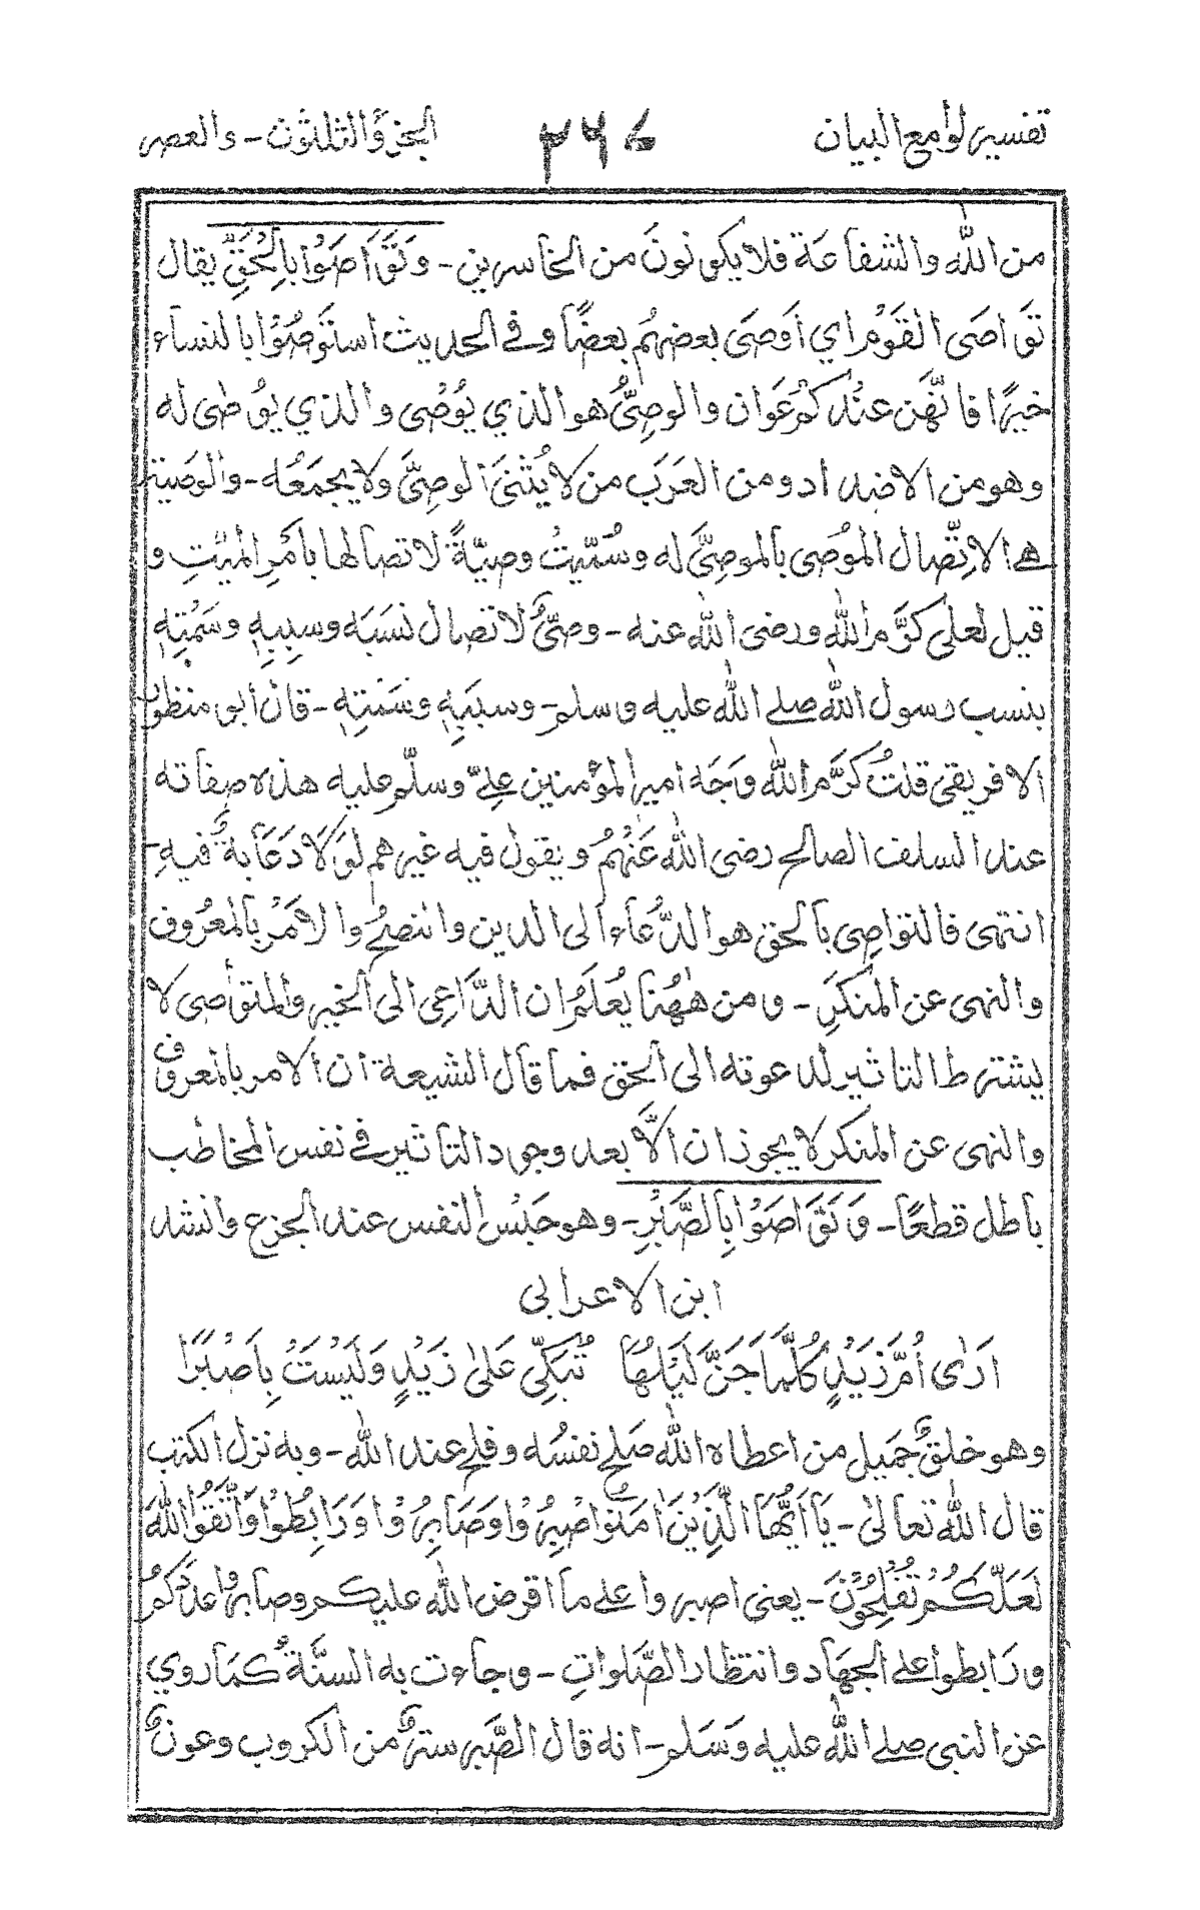 تفسير لوامع البيان ٢٦٤ الجزؤ الثلثون - والعصر
من الله والشفاعة فلا يكونونَ من الخاسرين - وَتَوَاصَوْا بِالْحَقِّ يقال
تَوَاصَى القَوْمُ اي اَوصَى بعضهُم بعضًا وفي الحديث استَوصُوْا بالنساء
خيرًا فانَّهن عنْدكُمْ عَوَان والوصِيُّ هو الذي يُوْصٰى والذي يوْصٰى له
وهو من الاضداد ومن العَرَب من لا يُثنَى الوصِىَّ ولا يجمَعُه - والوَصية
هے الاِتّصال الموُصٰى بالموصِىَّ له وسُمّيتْ وصيّةً لاتصالها بأمرِ الميّتِ و
قيل لعلى كرَّم الله ورضى الله عنه - وصىٌّ لاتصال نسَبَه وسببِهٖ وسَمْتِهٖ
بنسب رسول الله صلے الله عليه وسلم - وسببَهٖ وسَمْتِهٖ - قال ابو منظور
الافريقى قلتُ كرَّم الله وَجَه امير المؤمنين علِىّ وسلّم عليه هذه صفاته
عند السلف الصالح رضى الله عَنْهُمْ ويقول فيه غيرهم لوَلَا دَعَابةٌ فيهِ -
انتهى فالتواصِى بالحق هو الدُّعَاء الى الدين والنصحُ والاَمْرُ بالمعرُوف
والنهى عن المنكَرِ - ومن هٰهُنا يُعْلَمُ ان الدَّاعِى الى الخير والمتوَاصى لا
يشترط التاثير لدعوته الى الحق فما قال الشيعة ان الامر بالمعروف
والنهى عن المنكر لا يجوزان الاَّ بعد وجود التاثير فے نفس المخاطب
باطل قطعًا - وَتَوَاصَوْا بِالصَّبْرِ - وهو حَبْسُ النفس عند الجزع وانشد
ابن الاعرابى
اَرٰى اُمَّ زَيْدٍ كُلَّمَا جَنَّ لَيْلُهَا تُبَكِّى عَلىٰ زَيْدٍ وَلَيْسَتْ بِاَصْبَرَا
وهو خلقٌ جَميل من اعطاه الله صَلح نفسُه وفلح عند الله - وبه نزل الكتٰب
قال الله تعالىٰ - يَآ اَيُّهَا الَّذِيْنَ اٰمَنُوا اصْبِرُوْا وَصَابِرُوْا وَرَابِطُوْا وَاتَّقُوا اللهَ
لَعَلَّكُمْ تُفْلِحُوْنَ - يعنى اصبروا على ما افترض الله عليكم وصابروا عدوّكمْ
ورَابطوا على الجهاد وانتظار الصَّلواتِ - وجاءت به السنّة كمَا روي
عن النبى صلے الله عليه وَسَلم - انه قال الصَّبر سترٌ من الكروب وعونٌ